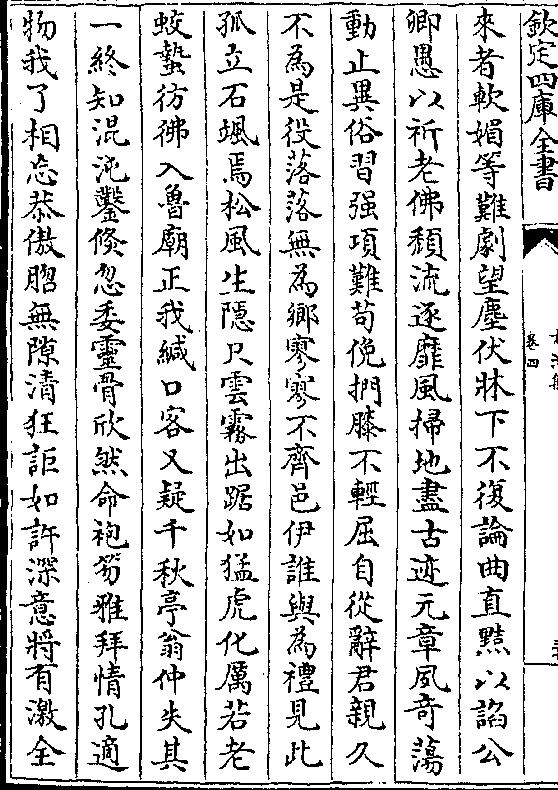 欽定四庫全書
卷四
來者軟媚等難劇望塵伏牀下不復論曲直黠以諂公
卿愚以祈老佛頹流逐靡風掃地盡古迹元章夙竒蕩
動止異俗習强項難茍俛捫膝不輕屈自從辭君親久
不為是役落落無為鄉寥寥不齊邑伊誰與為禮見此
孤立石颯焉松風生隱只雲霧出踞如猛虎化厲若老
蛟蟄彷彿入魯廟正我緘口客又疑千秋亭翁仲失其
一終知混沌鑿倐忽委靈骨欣然命袍笏雅拜情孔適
物我了相忘恭傲脗無隙清狂詎如許深意將有激全